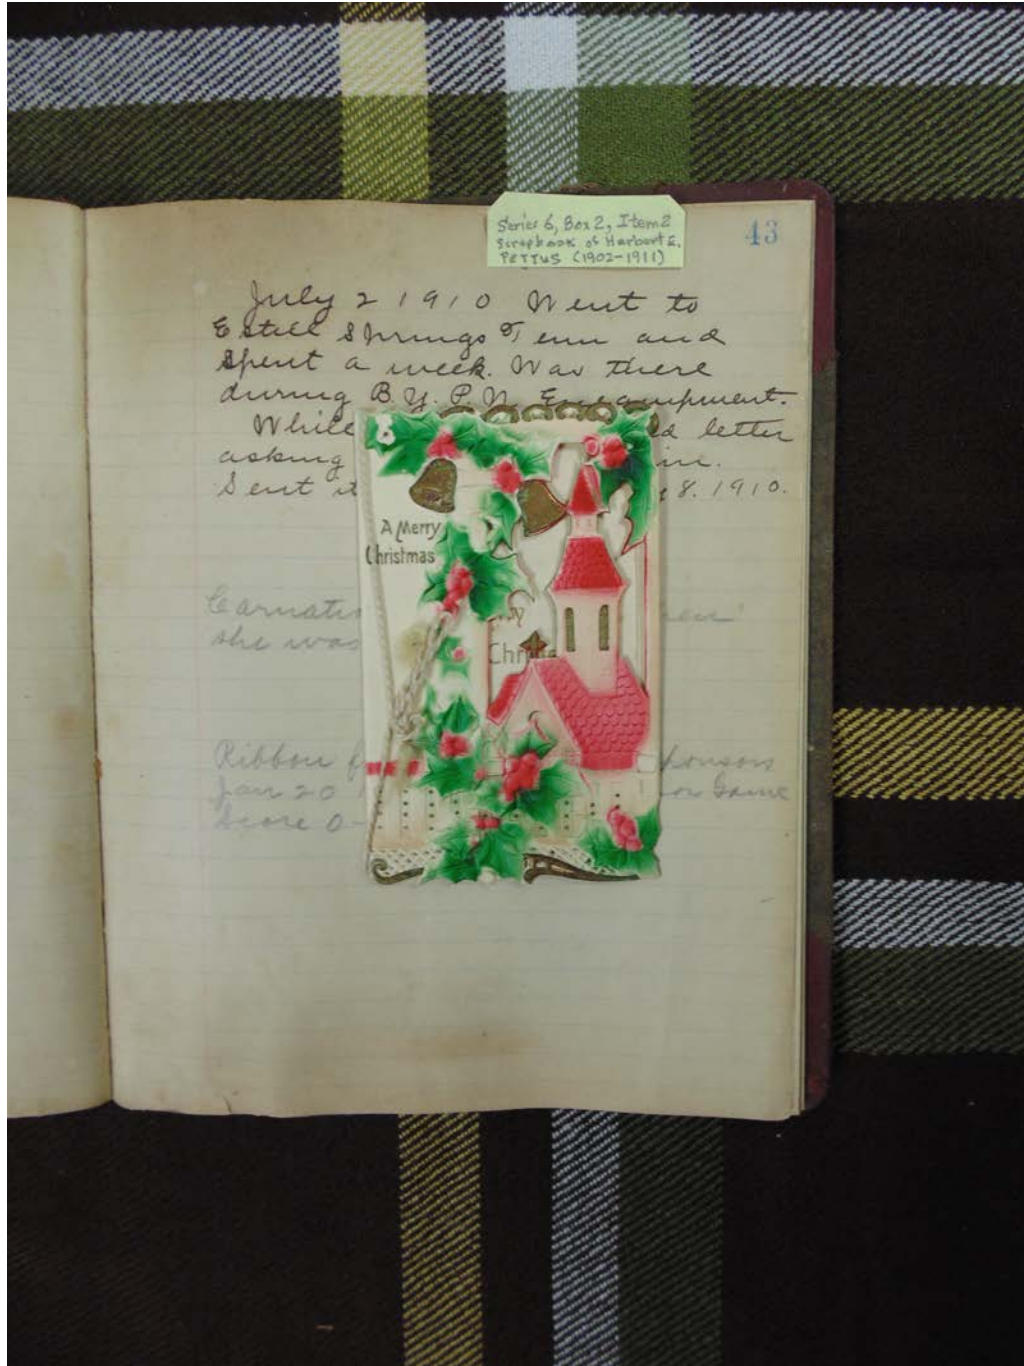 Series 6, Box 2, Item 2
Scrapbook of Harbert E.
PETTUS (1902-1911)
43
July 2 1910 Went to
Estill Springs Tenn and
spent a week. Was there
during B. Y. P. U. Encampment.
While ed letter
asking in.
Sent it 8. 1910.
A Merry
Christmas
Christ
she was
Ribbon
Jan 20 Game
Score 0-